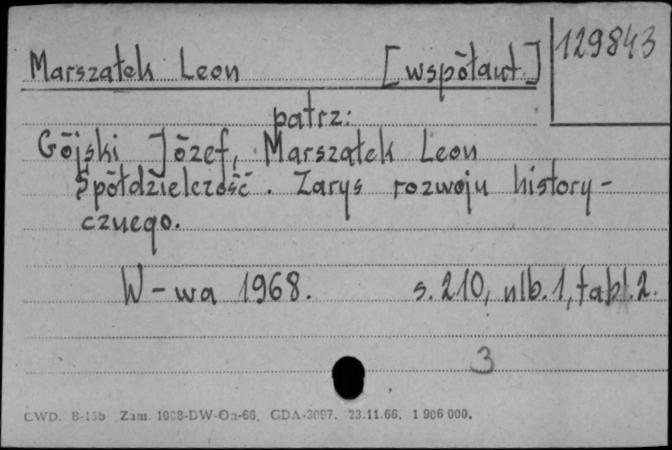 129843
Marszałek Leon [współaut.]
patrz:
Gójski Józef, Marszałek Leon
Spółdzielczość. Zarys rozwoju history-
cznego.
W-wa 1968. s. 210, nlb. 1, tabl. 2.
3
CWD. B-15b Zam. 1068-DW-On-66. GDA-3097. 23.11.66. 1 906 000.